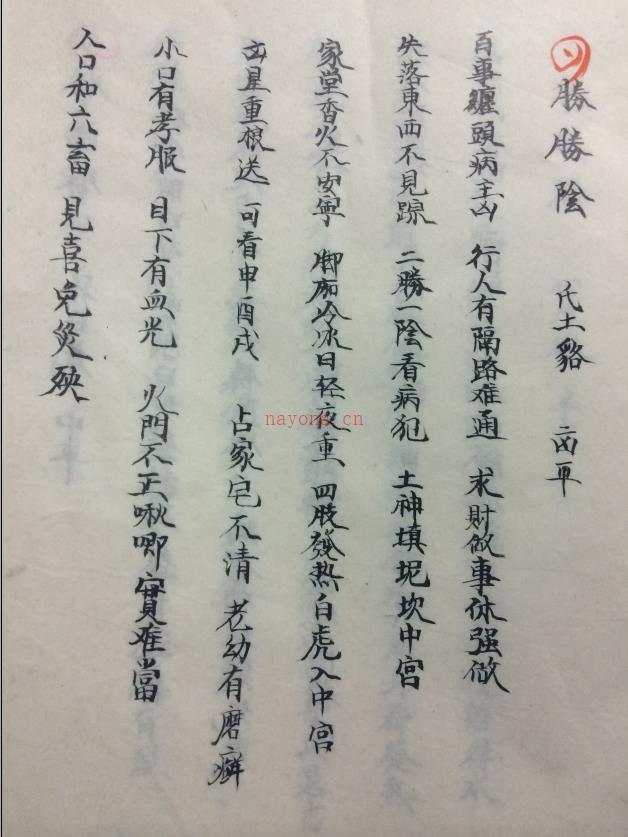 勝勝陰 氐土貉 卤平
百事纏頭病主凶 行人有隔路难通 求財做事休强做
失落東西不見踪 二勝一陰看病犯 土神填坭坎中宮
家堂香火不安寧 脚冷冰日轻夜重 四肢發热白虎入中宮
星重根送 可看申酉戌 占家宅不清 老幼有磨癣
小口有孝服 目下有血光 火門不正啾唧實难當
人口和六畜 見喜免災殃
nayons.cn